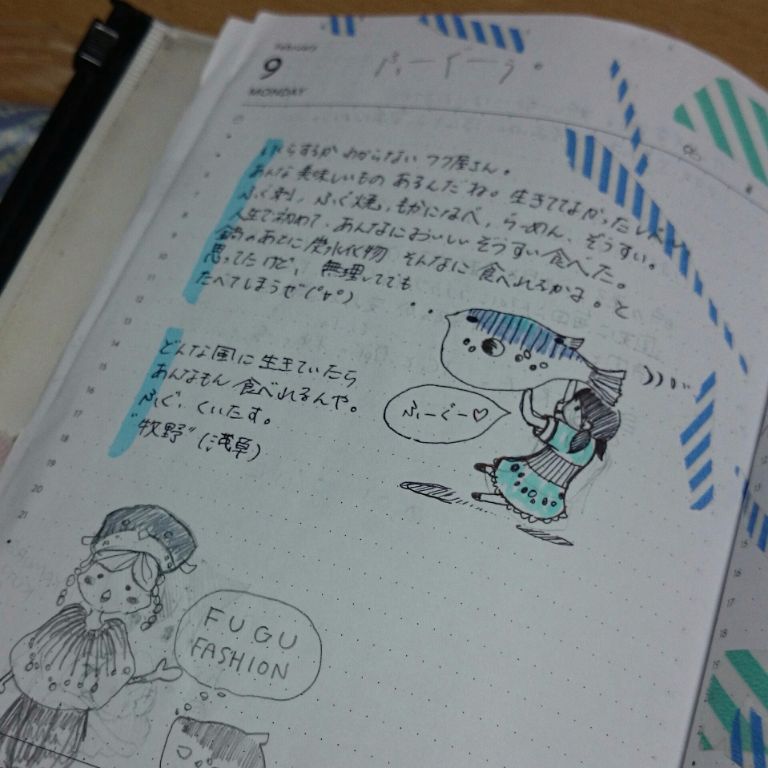 February
9
MONDAY
ふーぐーぅ。
いくらするかわからないフグ屋さん。
あんな美味しいものあるんだね。生きててよかったレベル
ふぐ刺、ふぐ焼、もかになべ、らーめん、ぞうすい。
人生で初めて、あんなにおいしいぞうすい食べた。
鍋のあとに炭水化物そんなに食べれるかよ。と
思ってたけど、無理してでも
たべてしまうぜ
どんな風に生きていたら
あんなもん食べれるんや。
ふぐ、くいたす。
"牧野"(浅草)
ふーぐー♡
FUGU
FASHION
8
9
10
11
12
13
14
15
16
17
18
19
20
21